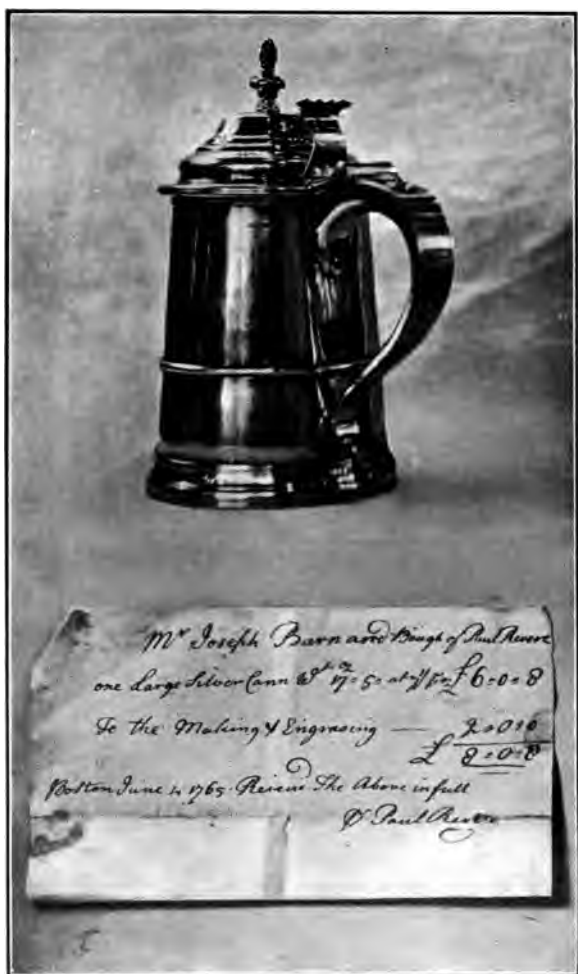 Mr Joseph Barnard Bough of Paul Revere
one Large Silver Cann Wt 17=5= at £6=0=8
To the Making & Engraving — 2=0=0
£ 8=0=8
Boston June 4 1765 Reciev'd The Above in full
Paul Revere